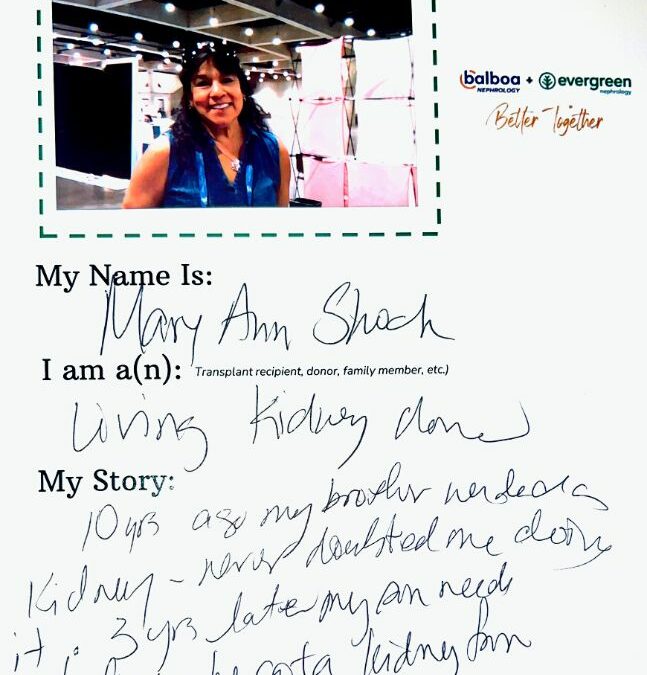 balboa + evergreen
NEPHROLOGY nephrology
Better Together
My Name Is:
Mary Ann Shock
I am a(n): Transplant recipient, donor, family member, etc.)
Living Kidney donor
My Story:
10 yrs ago my brother needed a
Kidney - never doubted me doing
it. 3 yrs later my son needs
he got a kidney from